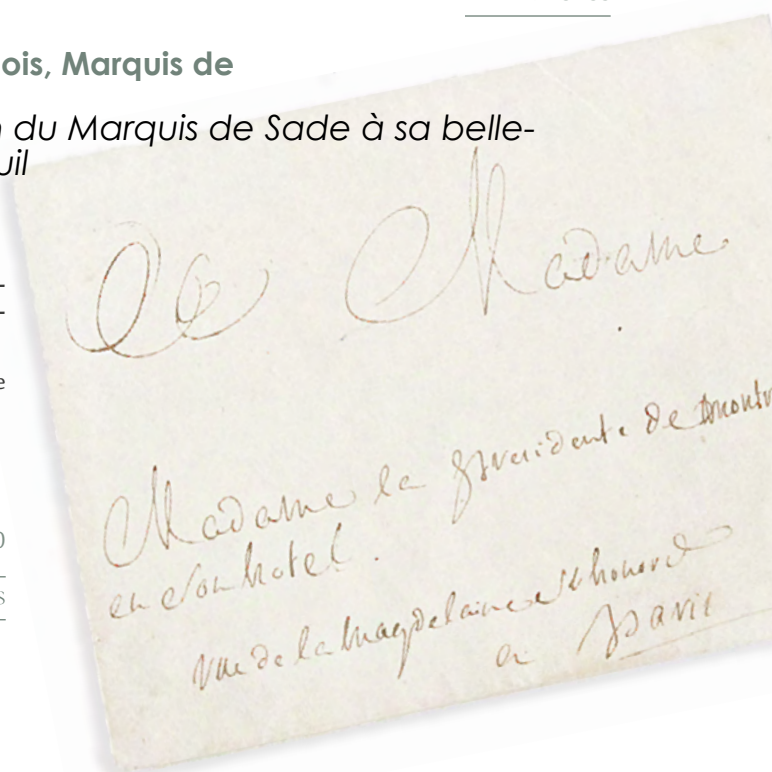 ois, Marquis de
du Marquis de Sade à sa belle-
uil
Madame
Madame la presidente de montr
en son hotel.
rue de la magdelaine st honoré
a paris